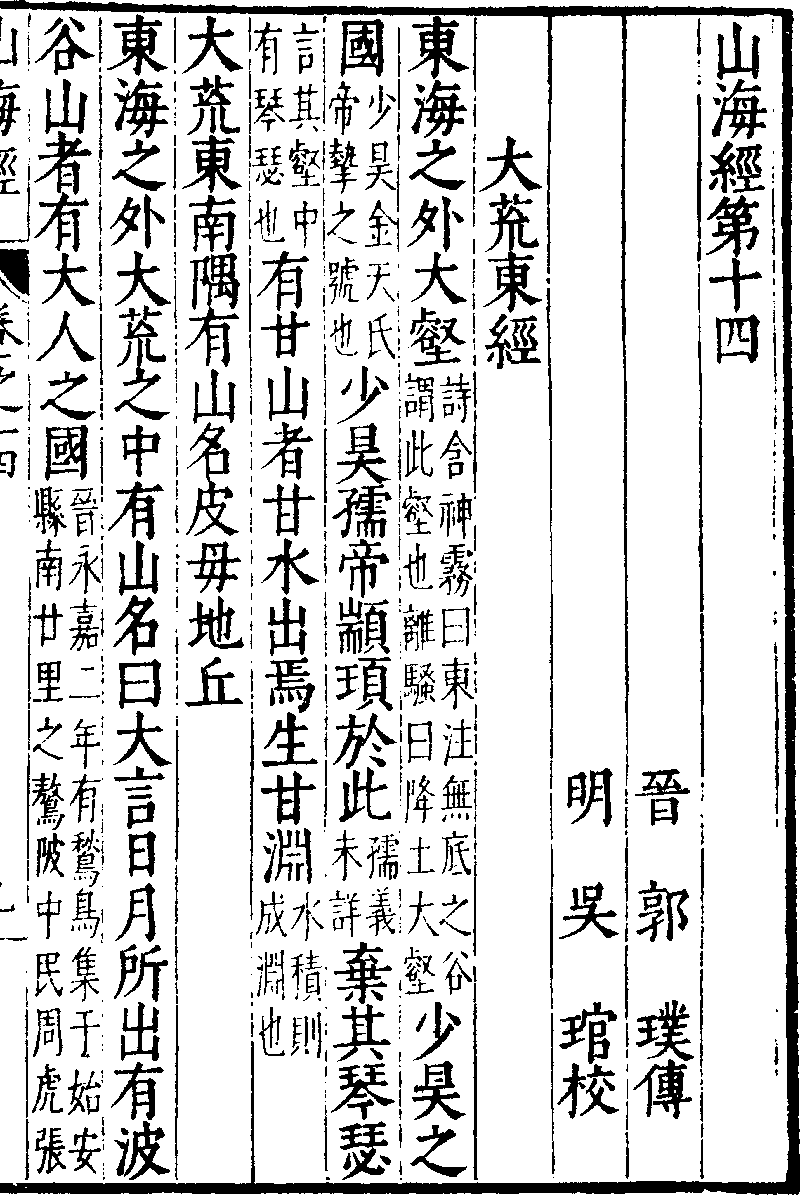 山海經第十四
晉 郭 璞傳
明 吳 琯校
大荒東經
東海之外大壑詩含神霧曰東注無底之谷謂此壑也離騷曰降土大壑少昊之
國少昊金天氏帝摯之號也少昊孺帝顓頊於此孺義未詳棄其琴瑟
言其壑中有琴瑟也有甘山者甘水出焉生甘淵水積則成淵也
大荒東南隅有山名皮毋地丘
東海之外大荒之中有山名曰大言日月所出有波
谷山者有大人之國晉永嘉二年有鶖鳥集于始安縣南廿里之鶩陂中民周虎張
山海經 卷之十四